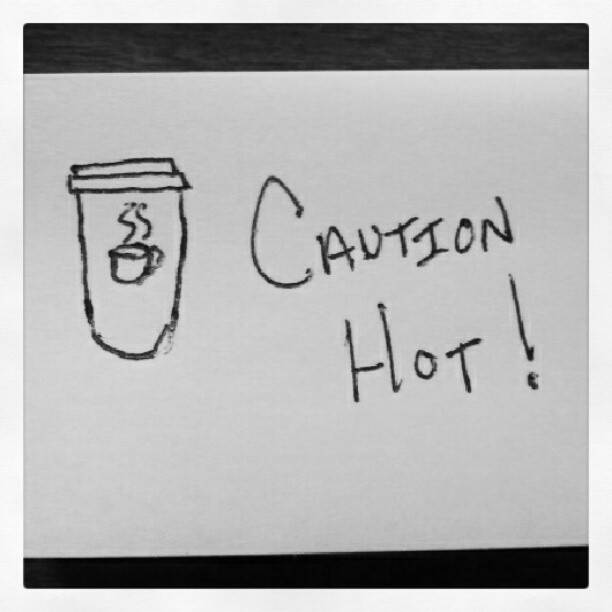 CAUTION
HOT!